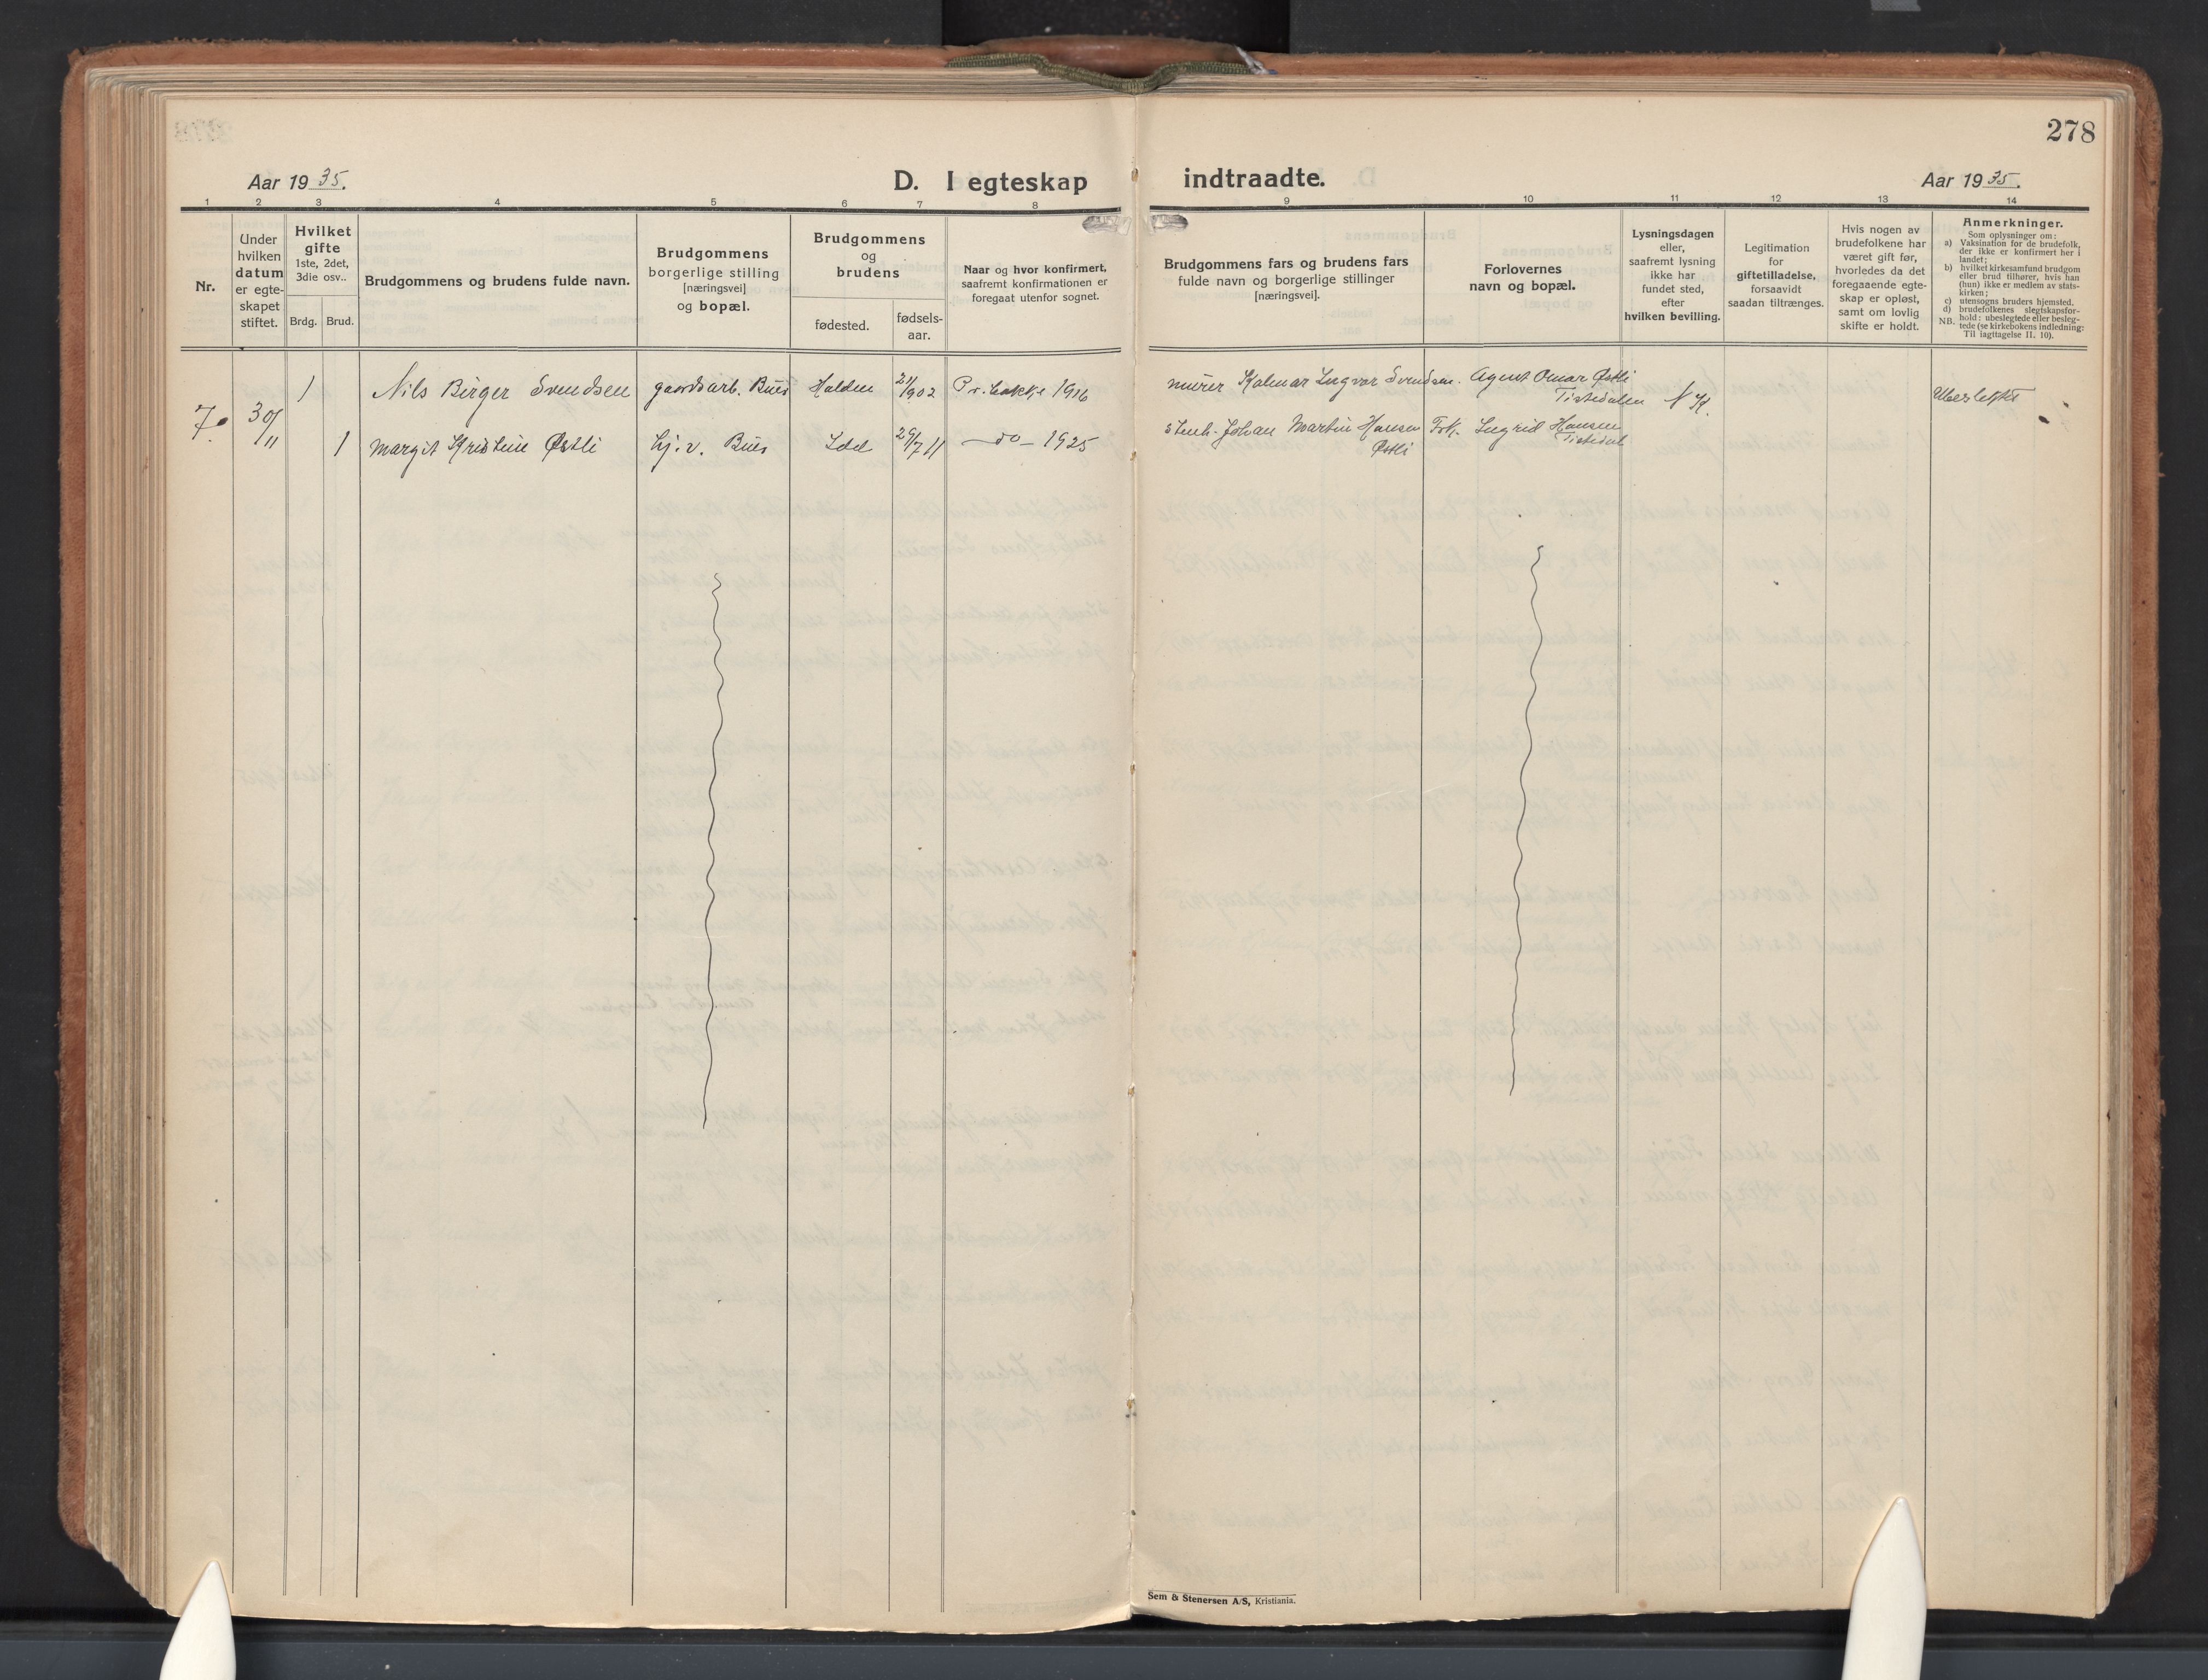 278
Aar 1935.
D. I egteskap indtraadte.
Aar 1935.
1 2 3 4 5 6 7 8 9 10 11 12 13 14
Nr.
Under
hvilken
datum
er egte-
skapet
stiftet.
Hvilket
gifte
1ste, 2det,
3die osv..
Brdg. Brud.
Brudgommens og brudens fulde navn.
Brudgommens
borgerlige stilling
[næringsvei]
og bopæl.
Brudgommens
og
brudens
fødested.
fødsels-
aar.
Naar og hvor konfirmert,
saafremt konfirmationen er
foregaat utenfor sognet.
Brudgommens fars og brudens fars
fulde navn og borgerlige stillinger
[næringsvei].
Forlovernes
navn og bopæl.
Lysningsdagen
eller,
saafremt lysning
ikke har
fundet sted,
efter
hvilken bevilling.
Legitimation
for
giftetilladelse,
forsaavidt
saadan tiltrænges.
Hvis nogen av
brudefolkene har
været gift før,
hvorledes da det
foregaaende egte-
skap er opløst,
samt om lovlig
skifte er holdt.
Anmerkninger.
Som oplysninger om:
a) Vaksination for de brudefolk,
der ikke er konfirmert her i
landet;
b) hvilket kirkesamfund brudgom
eller brud tilhører, hvis han
(hun) ikke er medlem av stats-
kirken;
c) utensogns bruders hjemsted.
d) brudefolkenes slegtskapsfor-
hold: ubeslegtede eller besleg-
NB. tede (se kirkebokens indledning:
Til iagttagelse II. 10).
7. 30/11
1 Nils Birger Svendsen gaardsarb. Buer Halden 21/1902 Pr. bakke 1916 murer Kalmar Ingvar Svendsen. Agent Omar Østli
Tistedalen N K. Ubeslektet
1 Margit Kristine Østli hj.v. Buer Idd 29/7 11 — do — 1925 Johan Martin Hansen
Østli Frk. Ingrid Hansen
Tistedal
Sem & Stenersen A/S, Kristiania.